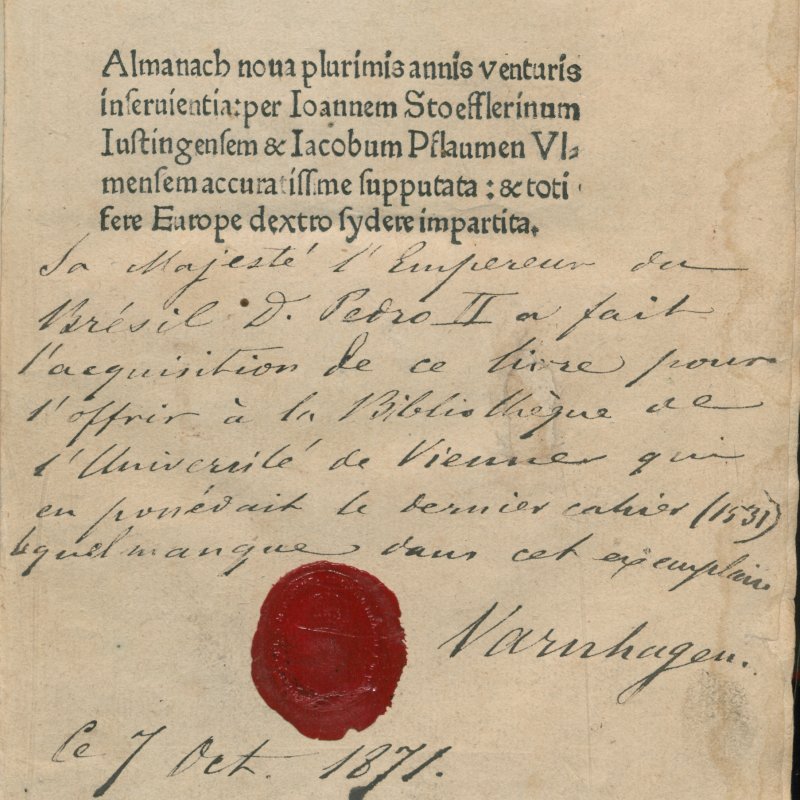 Almanach noua plurimis annis venturis
inseruientia: per Ioannem Stoefflerinum
Iustingensem & Iacobum Pflaumen Vl-
mensem accuratissime supputata: & toti
fere Europe dextro sydere impartita.
Sa Majesté l'Empereur du
Brésil D. Pedro II a fait
l'acquisition de ce livre pour
l'offrir à la Bibliothèque de
l'Université de Vienne qui
en possédait le dernier cahier (1531)
lequel manque dans cet exemplaire
Varnhagen.
Ce 7 Oct. 1871.